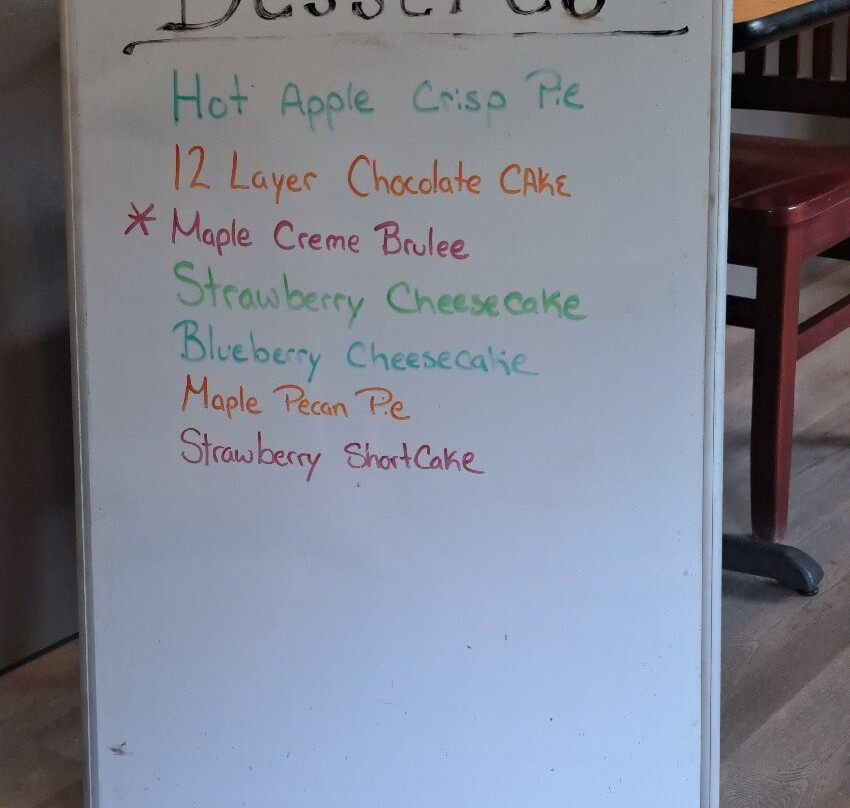 Desserts
Hot Apple Crisp Pie
12 Layer Chocolate CAKE
* Maple Creme Brulee
Strawberry Cheesecake
Blueberry Cheesecake
Maple Pecan Pie
Strawberry ShortCake